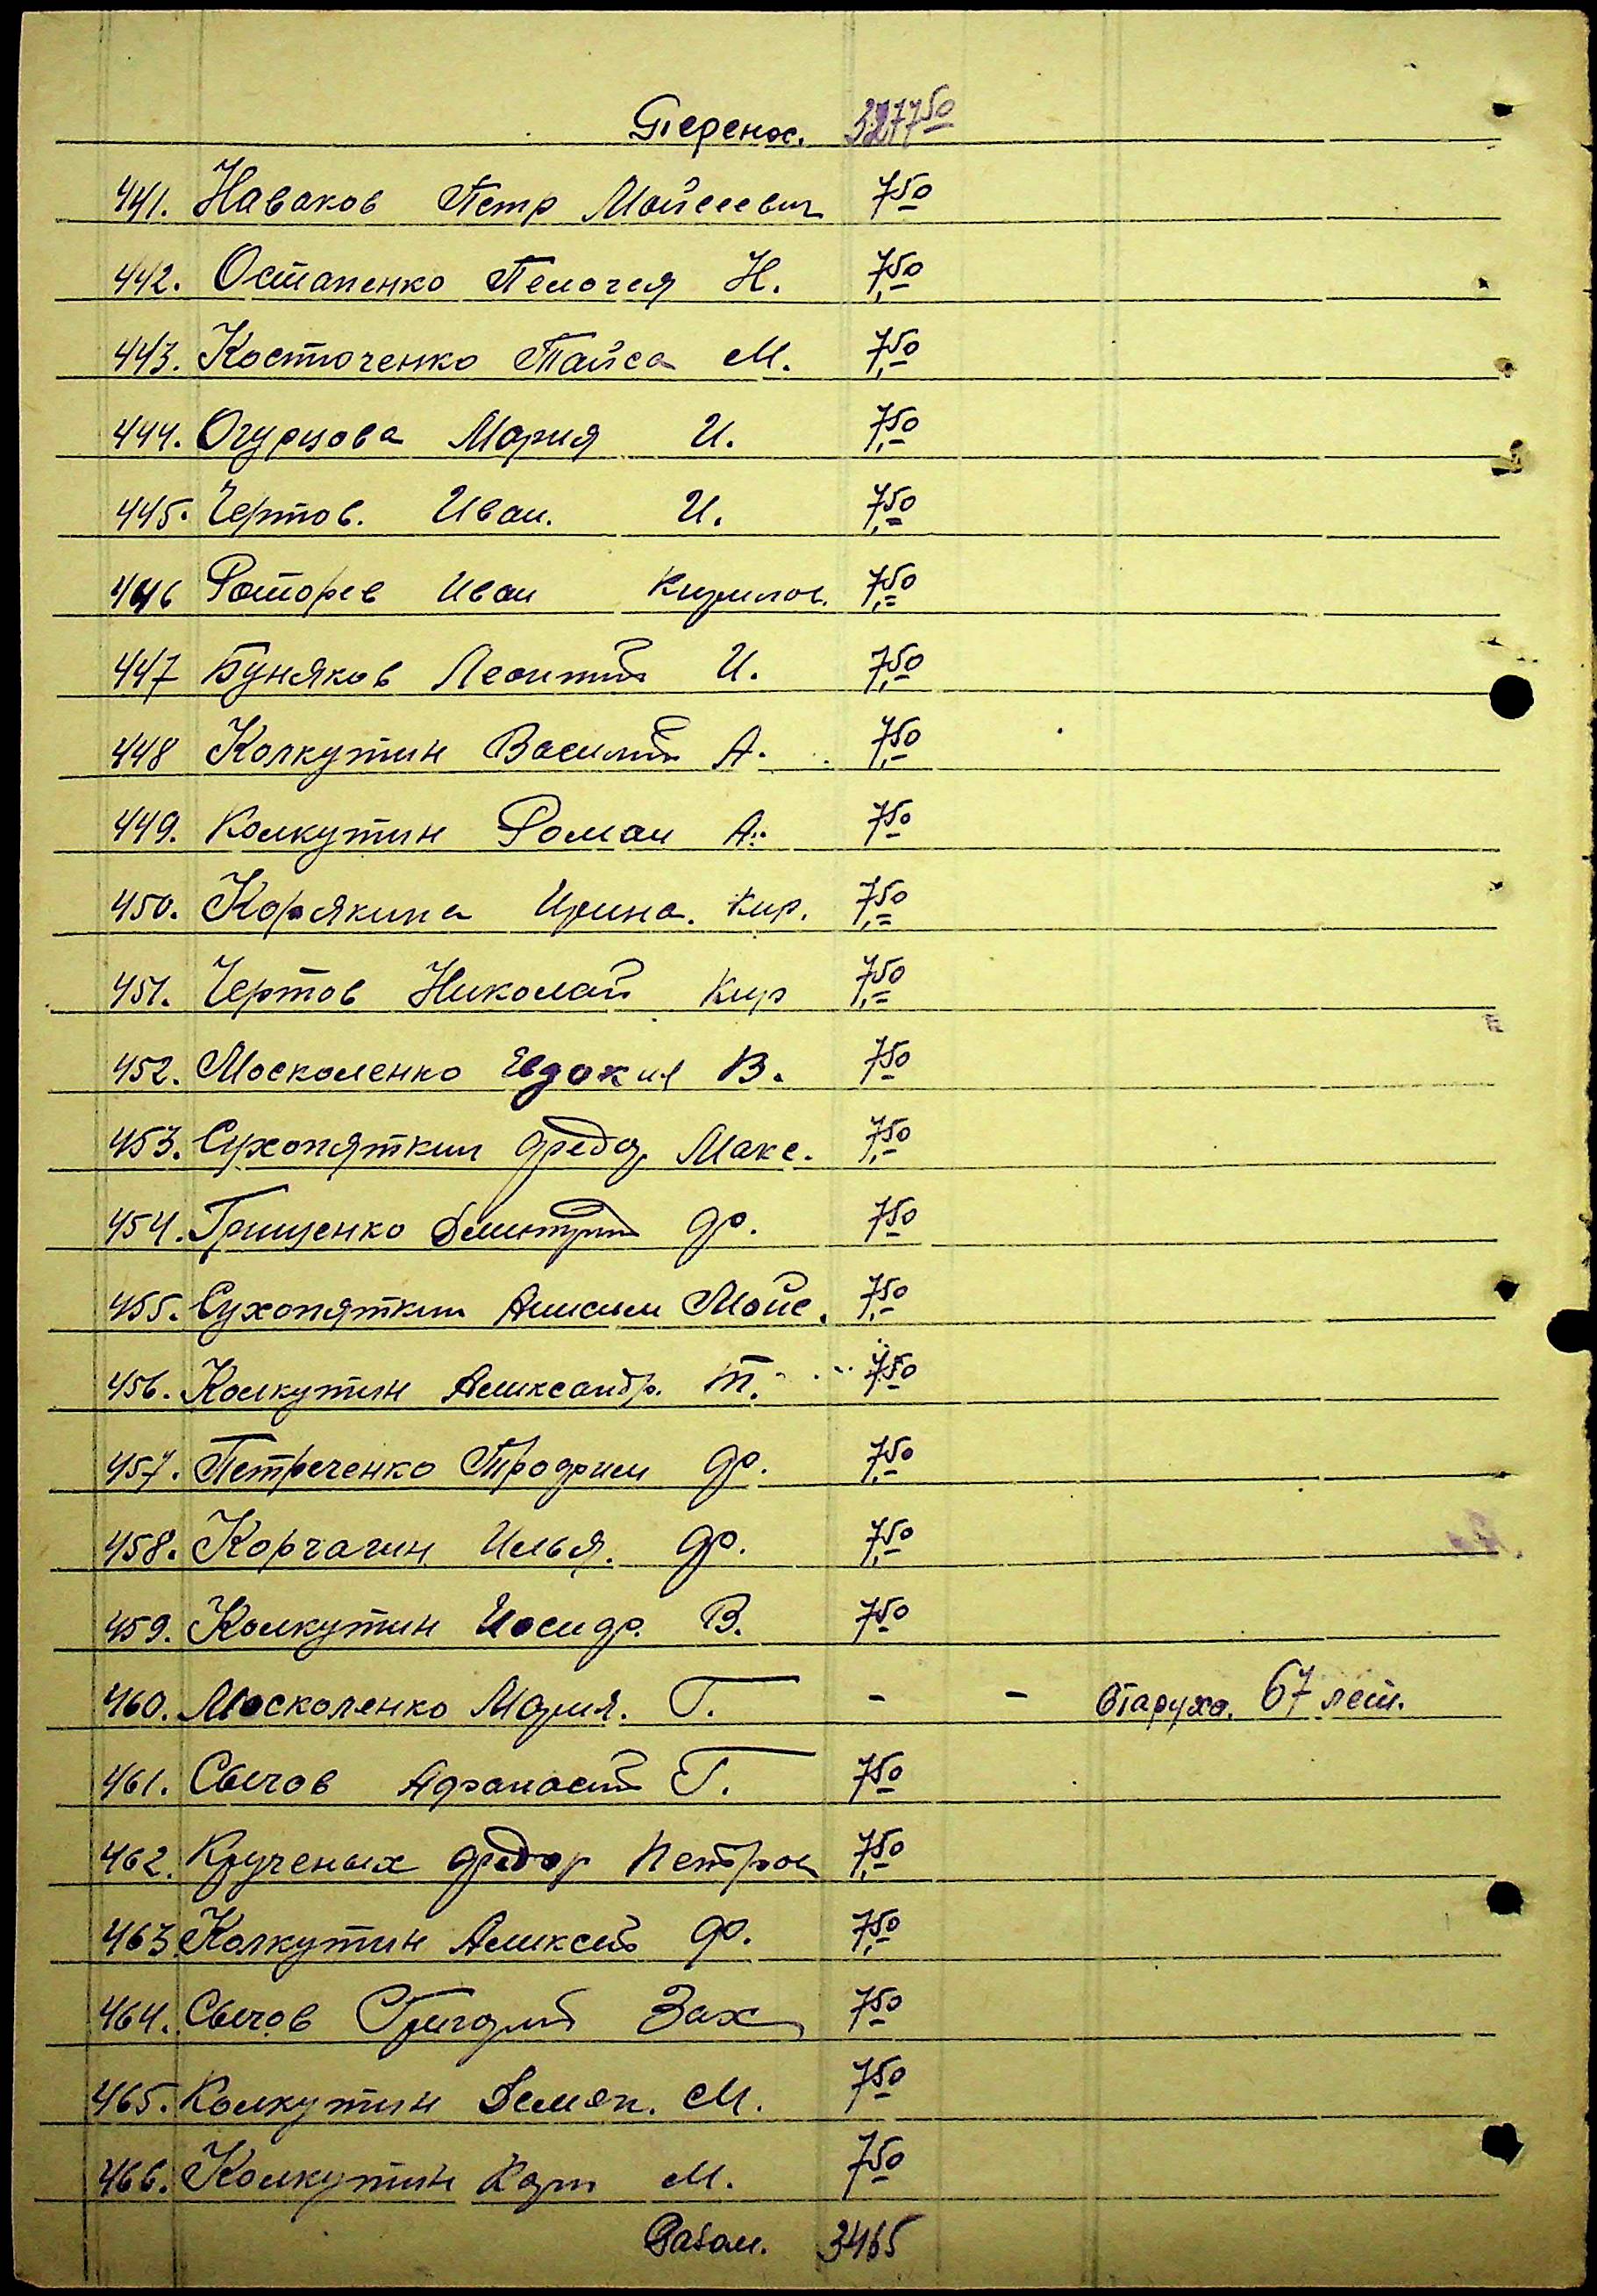 Перенос. 3277 50
441. Наваков Петр Мойсеевич 7,50
442. Остапенко Пелогея Н. 7,50
443. Костюченко Таиса М. 7,50
444. Огурцова Мария И. 7,50
445. Чертов. Иван. И. 7,50
446 Роторев Иван Кирилов. 7,50
447 Буняков Леонтий И. 7,50
448 Колкутин Василий А. 7,50
449. Колкутин Роман А. 7,50
450. Корякина Ирина. Кир. 7,50
451. Чертов Николай Кир 7,50
452. Москаленко Евдокия В. 7,50
453. Сухопяткин Федор Макс. 7,50
454. Грищенко Дмитрий Ф. 7,50
455. Сухопяткин Анисим Мойс. 7,50
456. Колкутин Александр. Т. 7,50
457. Петреченко Трофим Ф. 7,50
458. Корчагин Илья. Ф. 7,50
459. Колкутин Иосиф. В. 7,50
460. Москаленко Мария. Г. - - Старуха. 67 лет.
461. Сычов Афанасий Г. 7,50
462. Крученых Федор Петров 7,50
463 Колкутин Алексей Ф. 7,50
464. Сычов Григорий Зах 7,50
465. Колкутин Демян. М. 7,50
466. Колкутин М. 7,50
Разом. 3465